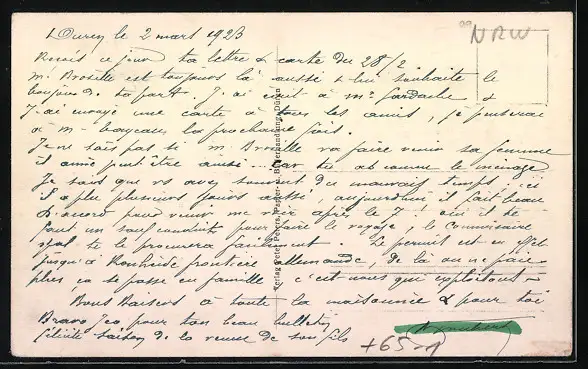 Duren le 2 mars 1923
NRW
Reçois ce jour ta lettre & carte du 28/2
Mr Broville est toujours là aussi & lui souhaite le
bonjour de ta part. J'ai écrit à Mr Gardache &
J'ai envoyé une carte à tous les amis, je penserai
à Mr la prochaine fois.
Je ne sais pas si Mr Broville va faire venir sa femme
il aime peut être aussi car tu as comme le ménage
Je sais que vs avez souvent du mauvais temps, ici
il a plu plusieurs jours aussi, aujourd'hui il fait beau
D'accord pour venir me voir après le 7 oui il te
faut un sauf conduit pour faire le voyage, le commissaire
spal te le procurera facilement. Le permit est en
Jusqu'à frontière allemande, de là on ne paie
plus ça se passe en famille c'est nous qui exploitons
Bons Baisers à toute la maisonnée & pour toi
Bravo Léo pour ton beau bulletin
félicite de la venue de son fils
+65-1
Verlag Peter Peters, Papier- u. Buchhandlung, Düren